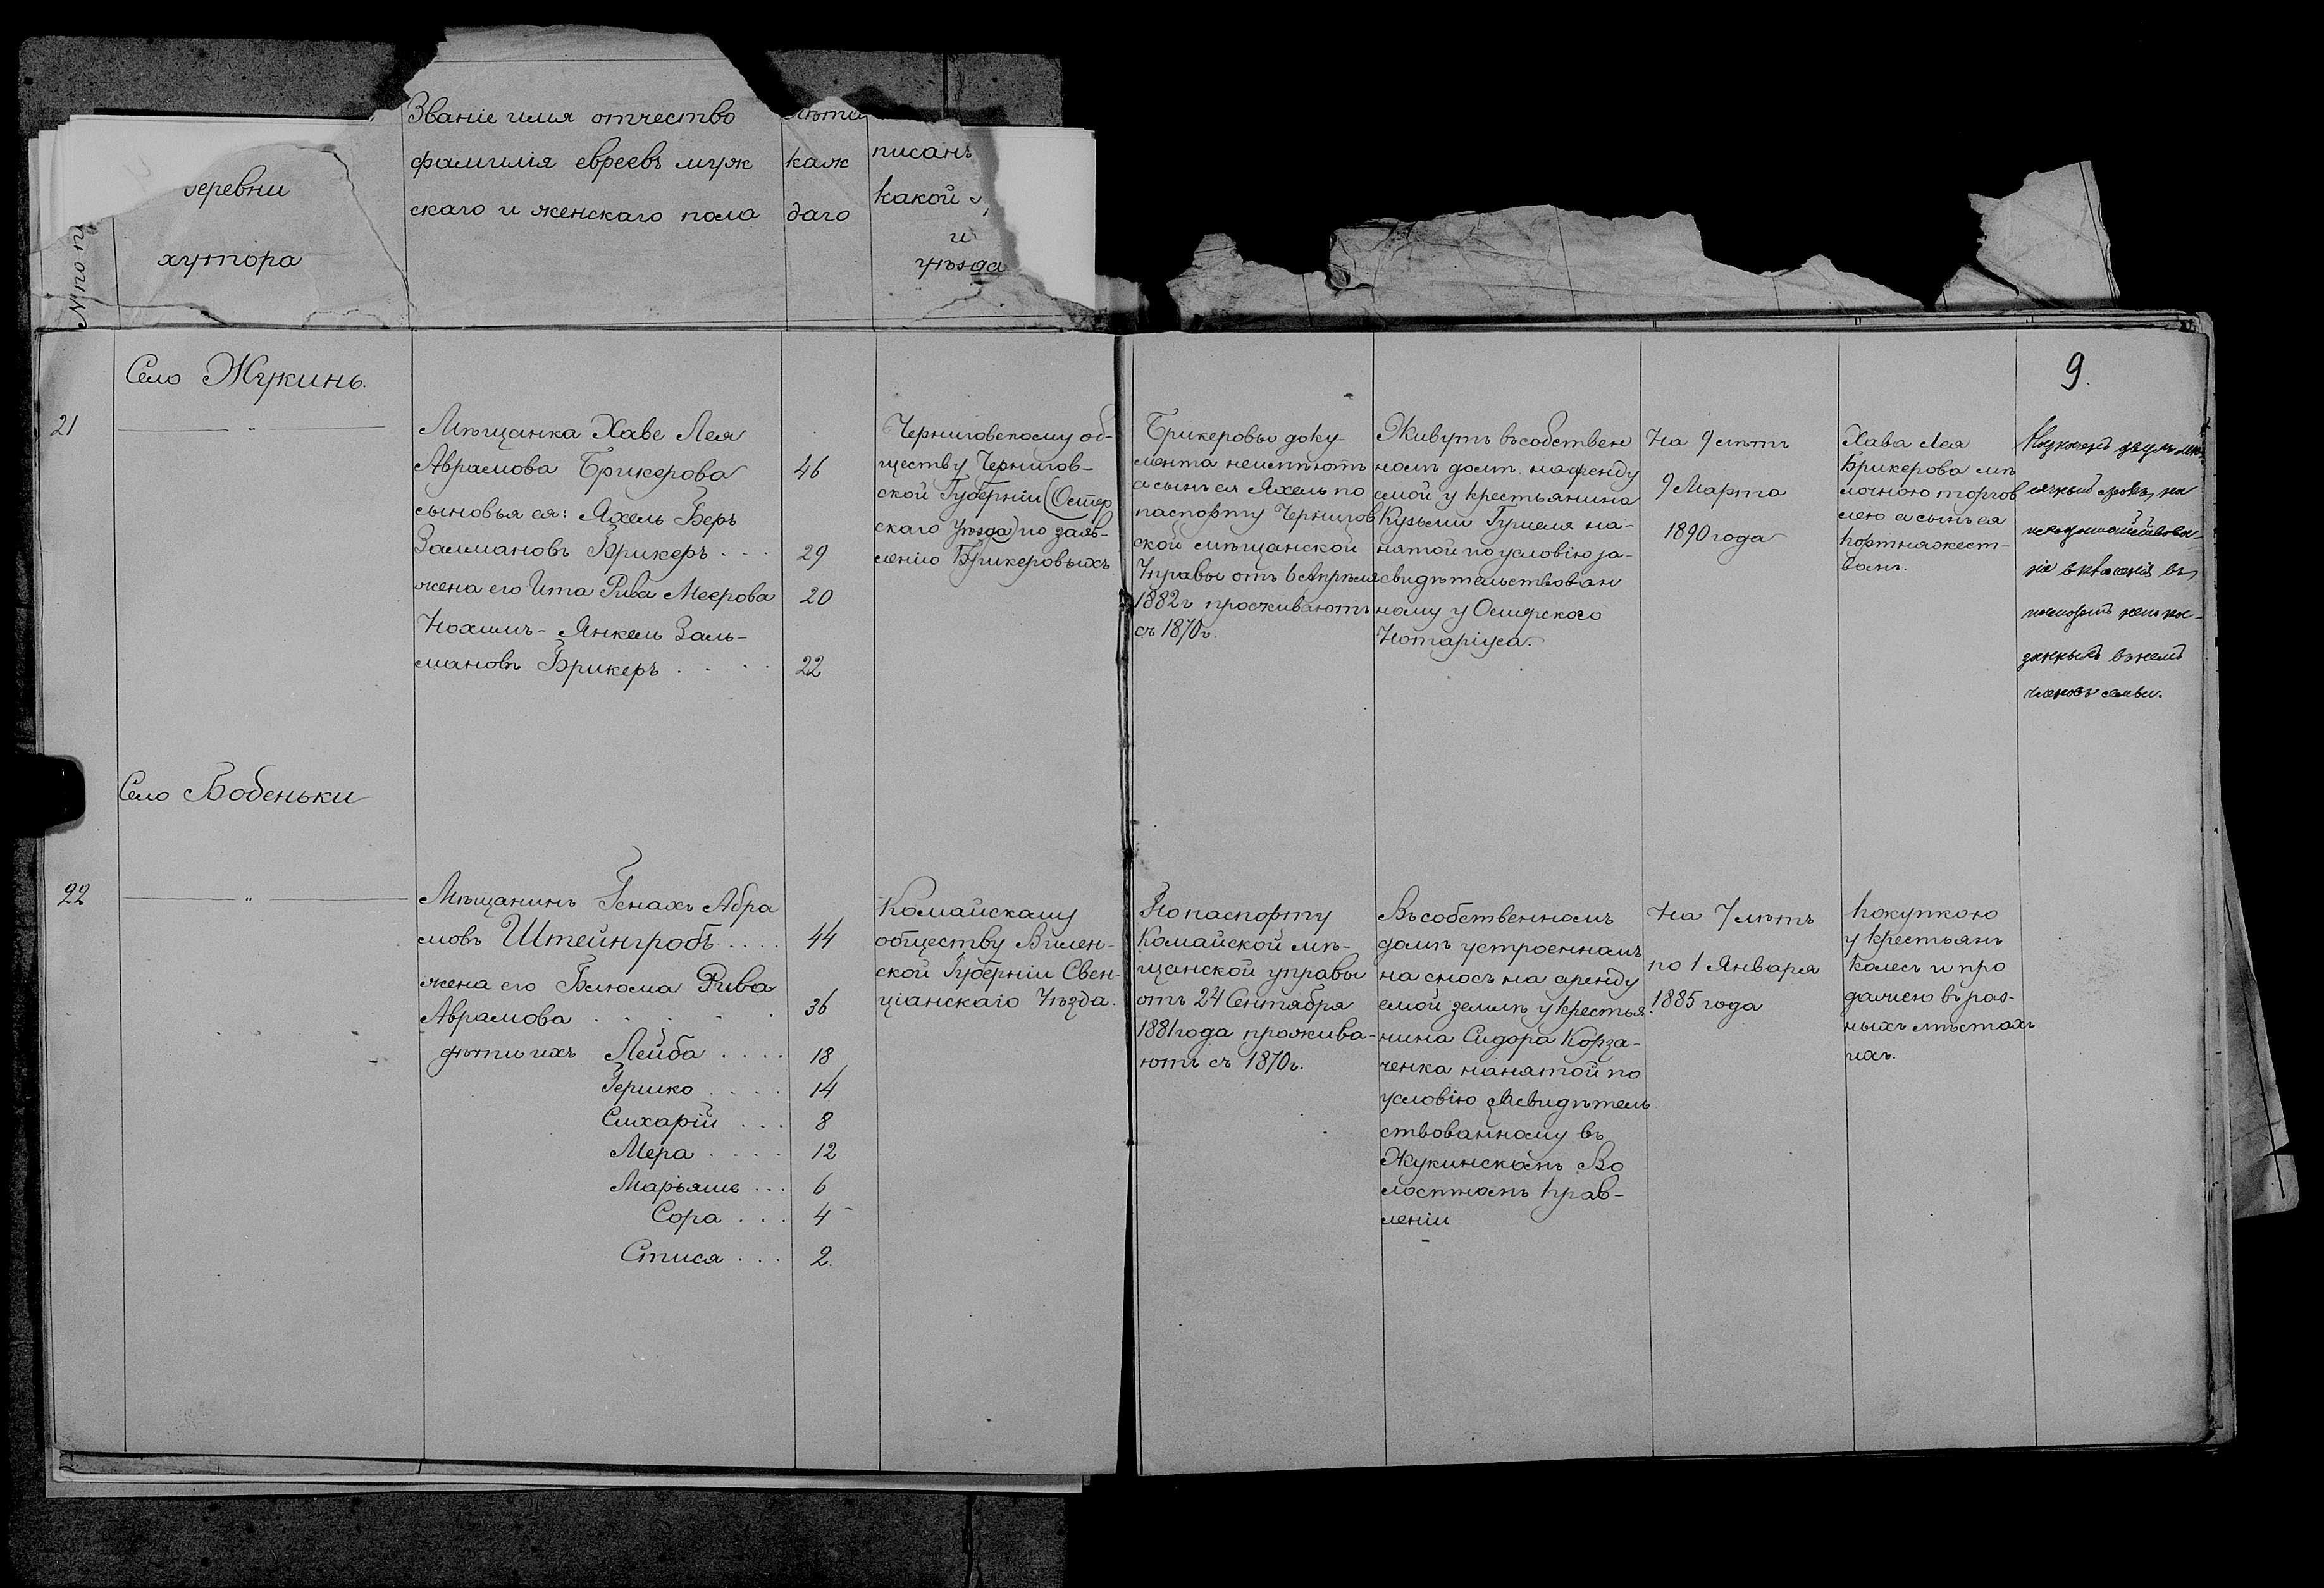 Званіе имя отчество
фамилія евреевъ муж
скаго и женскаго пола
каж
даго
писанъ
какой
и
уѣзда
деревни
хутора
9.
Село Жукинь.
21
Мѣщанка Хаве Лея
Аврамова Брикерова
46
сыновья ея: Яхель Беръ
Залмановъ Брикеръ . . .
29
жена его Ита Рива Меерова
20
Нохимъ-Янкель Заль-
мановъ Брикеръ . . . .
22
Черниговскому об-
ществу Чернигов-
ской Губерніи (Остер
скаго Уѣзда) по заяв-
ленію Брикеровыхъ
Брикеровы доку
мента неимѣютъ
а сынъ ея Яхель по
паспорту Чернигов
ской мѣщанской
Управы отъ 6 Апрѣля
1882 г проживаютъ
съ 1870 г.
Живутъ въ собствен
номъ домѣ на аренду
емой у крестьянина
Кузьми Гумеля на-
нятой по условію за-
свидѣтельствован
ному у Остерскаго
Нотаріуса.
На 9 лѣтъ
9 Марта
1890 года
Хава Лея
Брикерова мѣ
лочною торгов
лею а сынъ ея
портняжест-
вомъ.
срокъ на
въ
паспортъ
въ немъ
членовъ семьи.
Село Бобеньки
22
Мѣщанинъ Генахъ Абра
мовъ Штейнгробъ . . . .
44
жена его Блюма Рива
Аврамова . . . . .
36
дѣти ихъ Лейба . . . .
18
Гершко . . . .
14
Смхарій . . .
8
Мера . . . .
12
Марьяше . . .
6
Сора . . .
4
Стися . . .
2.
Комайскому
обществу Вилен-
ской Губерніи Свен-
ціанскаго Уѣзда.
По паспорту
Комайской мѣ-
щанской управы
отъ 24 Сентября
1881 года прожива-
ютъ съ 1870 г.
Въ собственномъ
домѣ устроенномъ
на сносъ на аренду
емой землѣ у крестья-
нина Сидора Корза-
ченка нанятой по
условію засвидѣтель
ствованному въ
Жукинскомъ Во
лостномъ Прав-
леніи
На 7 лѣтъ
по 1 Января
1885 года
Покупкою
у крестьянъ
колесъ и про
дажею въ раз-
ныхъ мѣстахъ
ихъ.